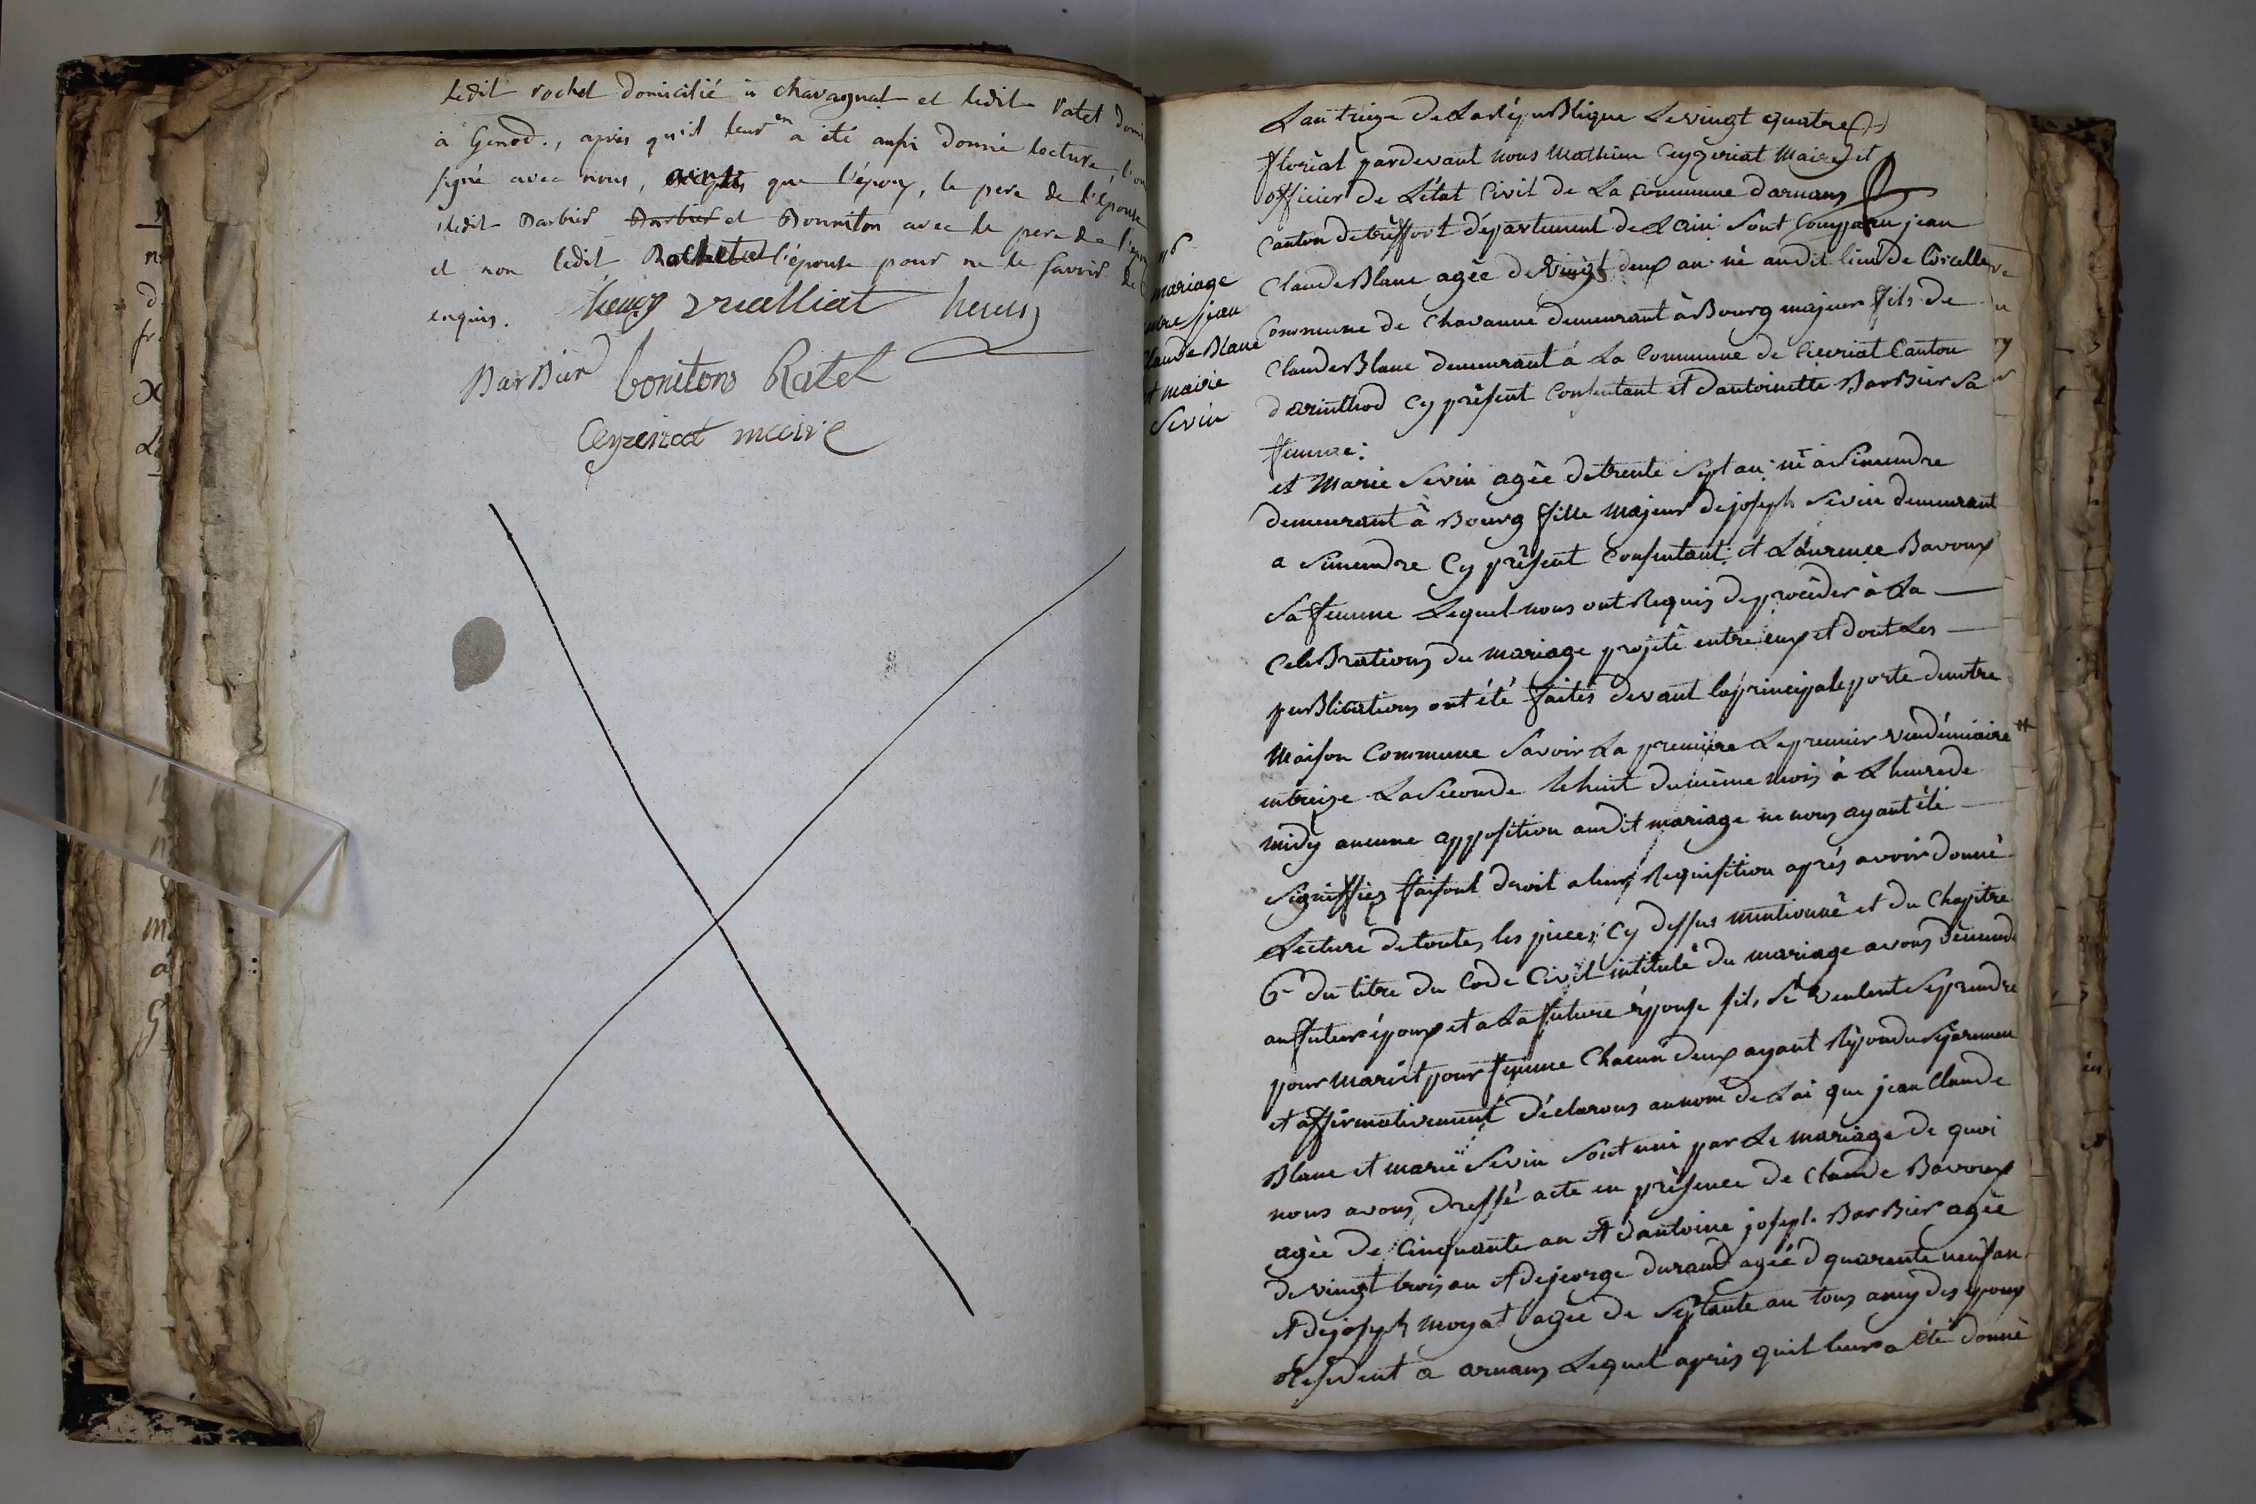 ledit rochet domicilié à chavagnat et ledit Ratel domi
à Genod., après qu'il leur en a été aussi donné lecture, l'on
signé avec nous, ainsi que l'époux, le pere de l'épouse
ledit Barbier Barbier et Bonniton avec le pere de l'épou
et non ledit Rochet et l'épouse pour ne le savoir de
enquis.
BarBier bonitons Ratel
Ceyzeriat maire
n°
mariage
entre jean
Claude Blanc
et marie
Sevin
L'an treize de La République Le vingt quatre
floréal pardevant nous Mathieu Ceyzeriat Maire et
officier de L'état Civil de La Commune d'arnans
Canton de treffort département de L'ain sont Comparu jean
Claude Blanc agée de vingt deux an né audit lieu de Corcelle
Commune de Chavanne demeurant à Bourg majeur fils de
Claude Blanc demeurant à La Commune de Civriat Canton
d'arinthod Cy présent Consentant et d'antoinette BarBier Sa
femme:
et Marie Sevin agée de trente Sept an né a Simendre
demeurant à Bourg fille Majeur de joseph Sevin demeurant
a Simendre Cy présent Consentant et Laurence Bavoux
Sa femme Lequel nous ont Requis de procéder à La
CeleBrations du mariage projeté entre eux et dont Les
puBlications ont été faites devant la principale porte de notre
Maison Commune Savoir La première Le premier vendémiaire
entreize La Seconde le huit du même mois à L'heure de
midy aucune apposition audit mariage ne nous ayant été
Signiffiez faisont droit a leurs Requisition après avoir donné
Lecture de toutes les pieces Cy dessus mentionné et du Chapitre
6e du titre du Code Civil intitulé du mariage avons demandé
au futur époux et a La future épouse sils Sé veulent Se prendre
pour Mari et pour femme Chacun deux ayant Répondu Séparemen
et affirmativement déclarons au nom de La loi que jean Claude
Blanc et marie Sevin Sont uni par Le mariage de quoi
nous avons dressé acte en présence de Claude Bavoux
agée de Cinquante an et d'antoine joseph BarBier agée
de vingt trois an et de jeorge durand agée d quarente neuf an
et de joseph moyat agée de Septante an tous amy des époux
Résident a arnans Lequel après quil leur a été donné